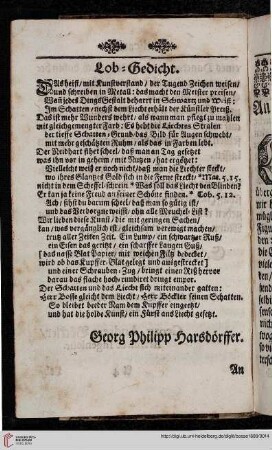 Lob-Gedicht.
Das heist/ mit Kunstverstand/ der Tugend Zeichen weisen/
und schreiben in Metall: das macht den Meister preisen/
Weil jedes Dings Gestalt beharrt in Schwartz und Weiß:
Im Schatten/ nechst dem Liecht erhält der Künstler Preiß.
Das ist mehr Wunders wehrt/ als wann man pflegt zu mahlen
mit gleichgemengter Farb: Es hebt des Liechtes Stralen
der tieffe Schatten-Grund: das Bild für Augen schwebt/
mit mehr geschätzten Ruhm/ als das in Farben lebt.
Der Neidhart sihet scheel/ daß man an Tag gesetzet
was ihn vor in geheim/ mit Nutzen/ hat ergötzet:
Vielleicht weiß er noch nicht/ daß man die Liechter steckt/
wo ihres Glantzes Gold sich in die Ferne streckt/ *Mat. 5, 15.
nicht in dem Scheffel-schrein * Was soll das Liecht den Blinden?
Er kan ja keine Freud an seiner Schöne finden. * Tob. 5. 12.
Ach/ sihst du darum scheel/ daß man so gütig ist/
und das Verborgne weist/ ohn alle Menschen List?
Wir lieben diese Kunst/ die mit geringen Sachen
kan/ was vergänglich ist/ gleichsam verewigt machen/
trutz aller Zeiten Zeit. Ein Lump/ ein schwartzer Ruß/
ein Eisen das geritzt/ ein scharffer Laugen Guß/
[das nasse Blat Papier/ mit weichen Filtz bedecket/
wird ob das Kupffer-Blat gelegt und ausgestrecket]
und einer Schrauben-Zug/ bringt einen Riß hervor
daran das flache hoch/ rundirt dringt empor.
Der Schatten und das Liecht sich miteinander gatten:
Herr Bosse gleicht dem Liecht/ Herr Böckler seinen Schatten.
So bleibet beeder Nam dem Kupffer eingeetzt/
und hat die holde Kunst/ ein Fürst ans Liecht gesetzt.
Georg Philipp Harsdörffer.
An
http://digi.ub.uni-heidelberg.de/diglit/bosse1689/0014